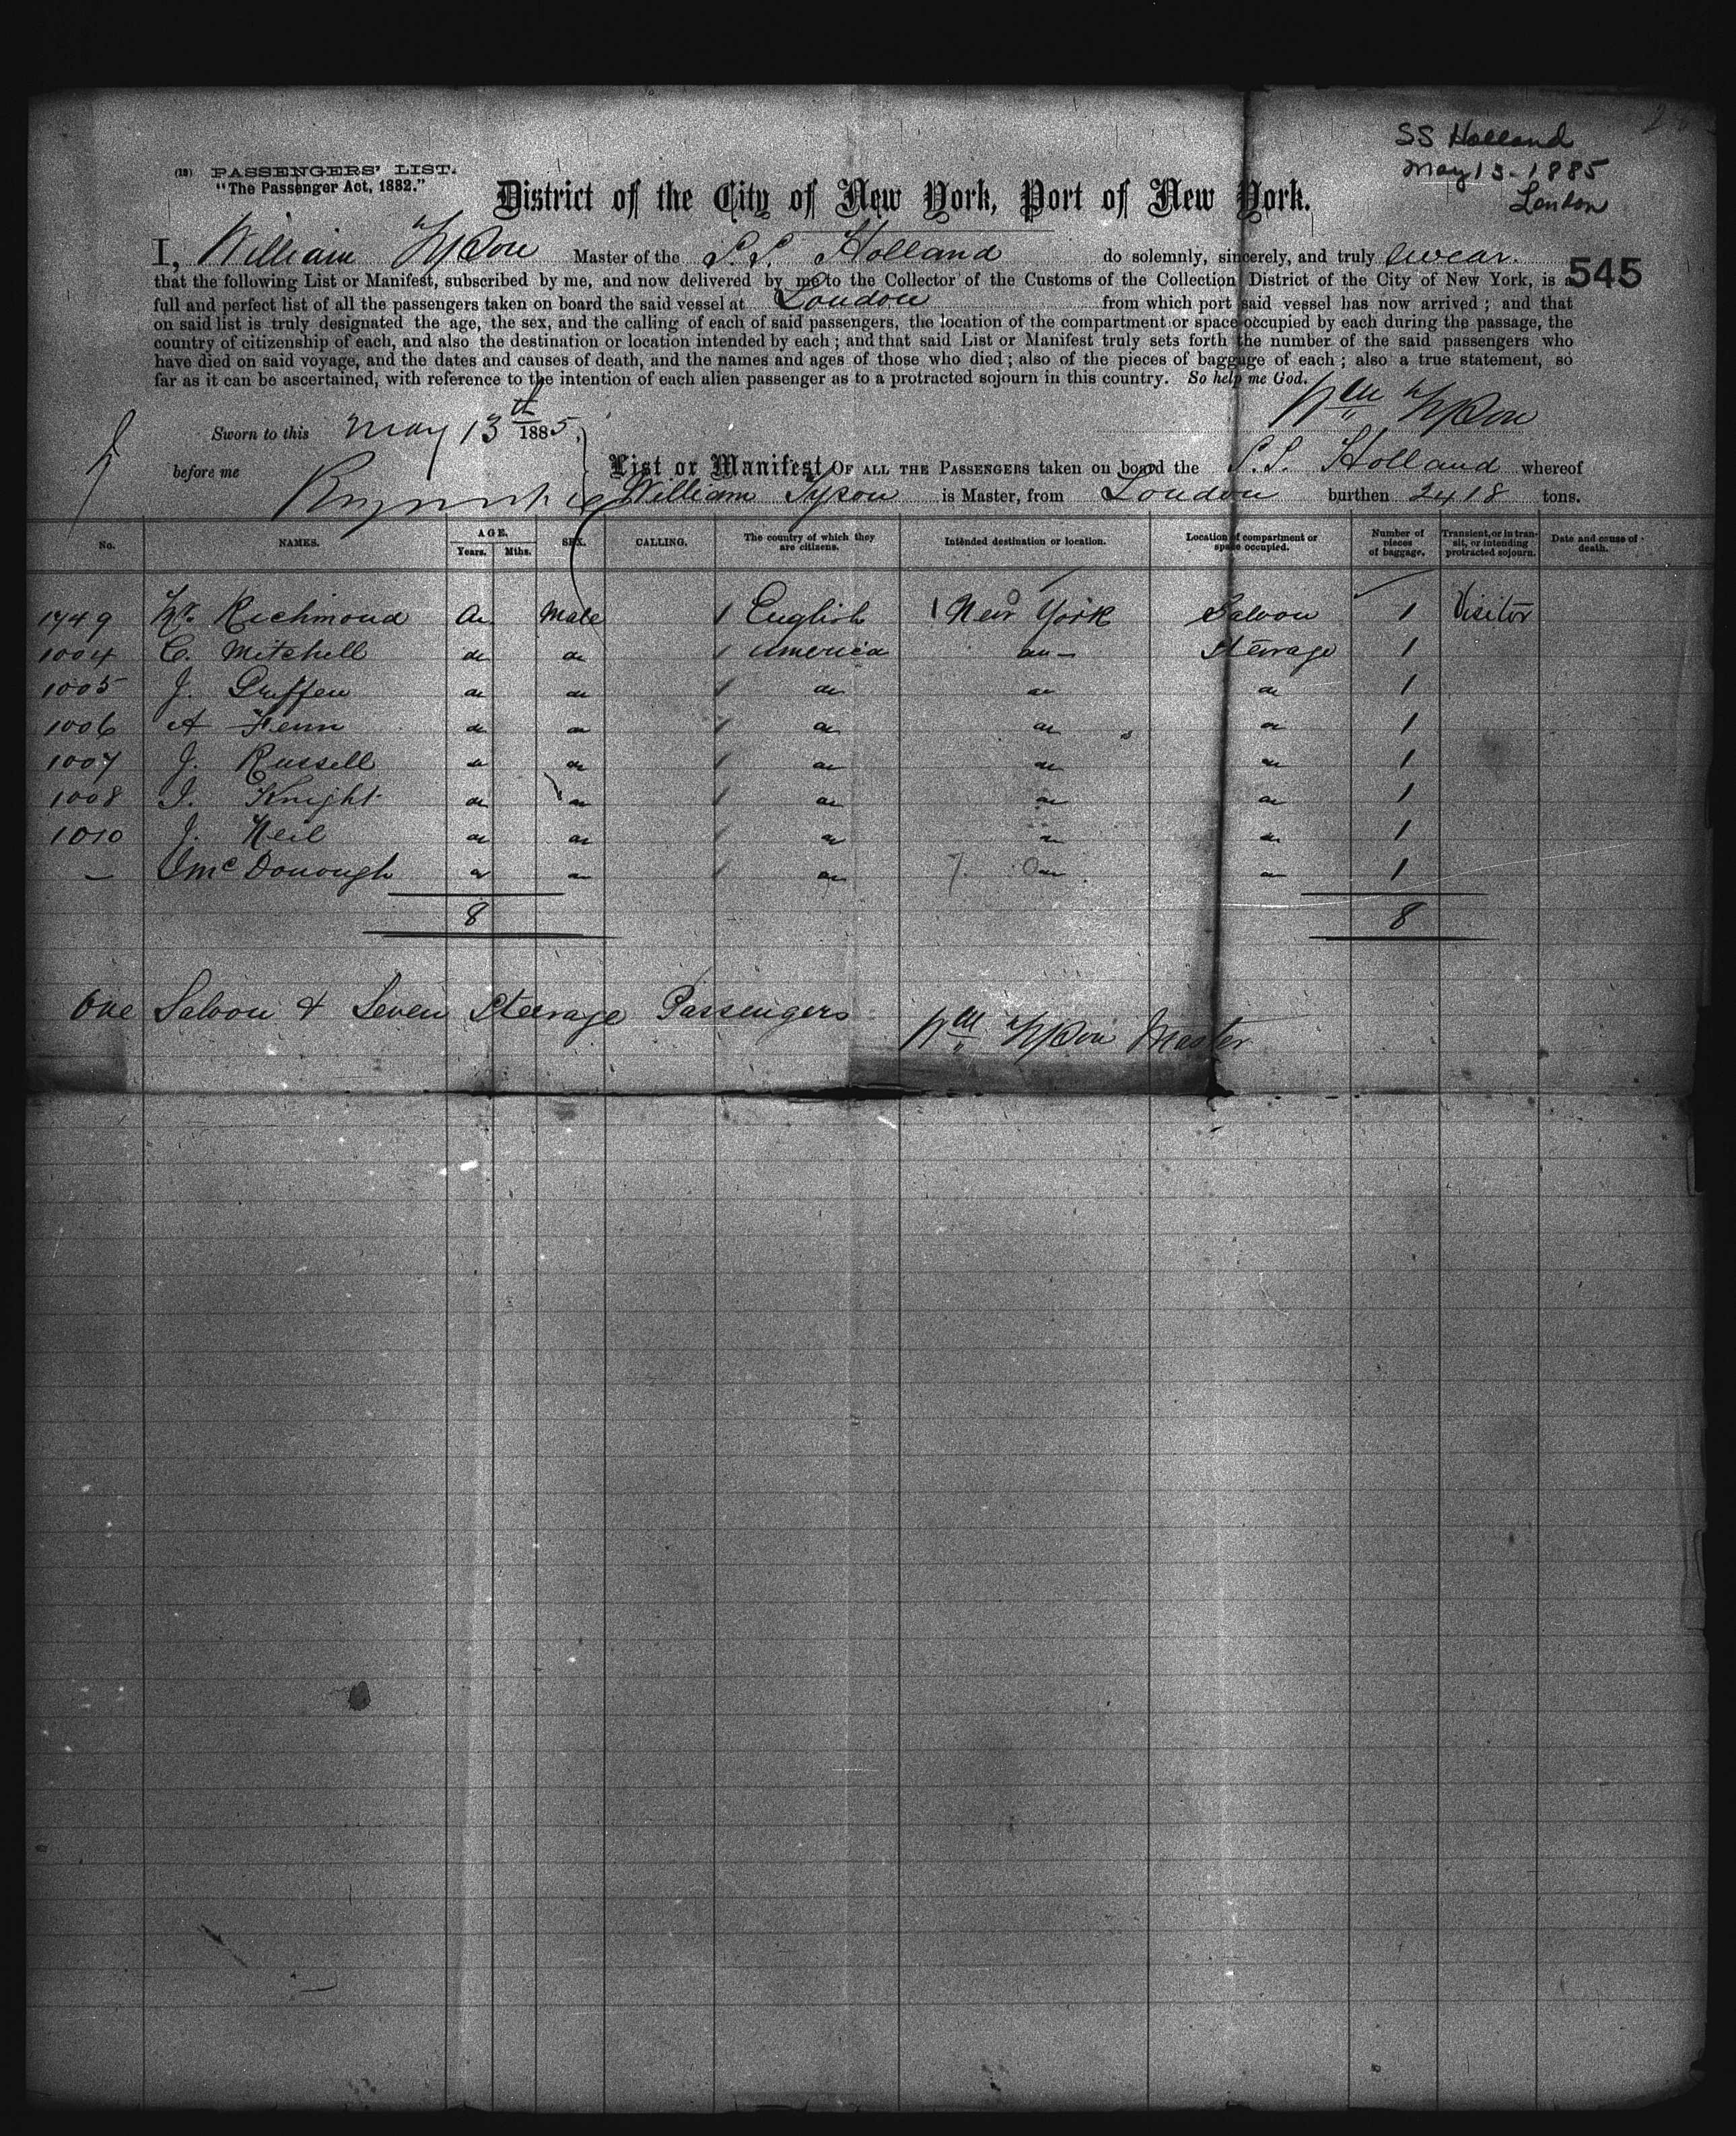 SS Holland
May 13-1885
London
(13) PASSENGERS' LIST.
"The Passenger Act, 1882."
District of the City of New York, Port of New York.
I, William Tyson Master of the S.S. Holland do solemnly, sincerely, and truly swear.
545
that the following List or Manifest, subscribed by me, and now delivered by me to the Collector of the Customs of the Collection District of the City of New York, is a
full and perfect list of all the passengers taken on board the said vessel at London from which port said vessel has now arrived; and that
on said list is truly designated the age, the sex, and the calling of each of said passengers, the location of the compartment or space occupied by each during the passage, the
country of citizenship of each, and also the destination or location intended by each; and that said List or Manifest truly sets forth the number of the said passengers who
have died on said voyage, and the dates and causes of death, and the names and ages of those who died; also of the pieces of baggage of each; also a true statement, so
far as it can be ascertained, with reference to the intention of each alien passenger as to a protracted sojourn in this country. So help me God.
Wm Tyson
Sworn to this May 13th 1885
before me
List or Manifest OF ALL THE PASSENGERS taken on board the S.S. Holland whereof
William Tyson is Master, from London burthen 2418 tons.
No. NAMES. AGE. Years. Mths. SEX. CALLING. The country of which they are citizens. Intended destination or location. Location of compartment or space occupied. Number of pieces of baggage. Transient, or in transit, or intending protracted sojourn. Date and cause of death.
1749 Richmond Male 1 English 1 New York Saloon 1 Visitor
1004 C. Mitchell do do 1 America do Steerage 1
1005 J. do do 1 do do do 1
1006 A Fenn do do 1 do do do 1
1007 J. Russell do do 1 do do do 1
1008 Knight do do 1 do do do 1
1010 J. Neil do do 1 do do do 1
— McDonough do do 1 do 7 do do 1
8 8
One Saloon & Seven Steerage Passengers
Wm Tyson Master